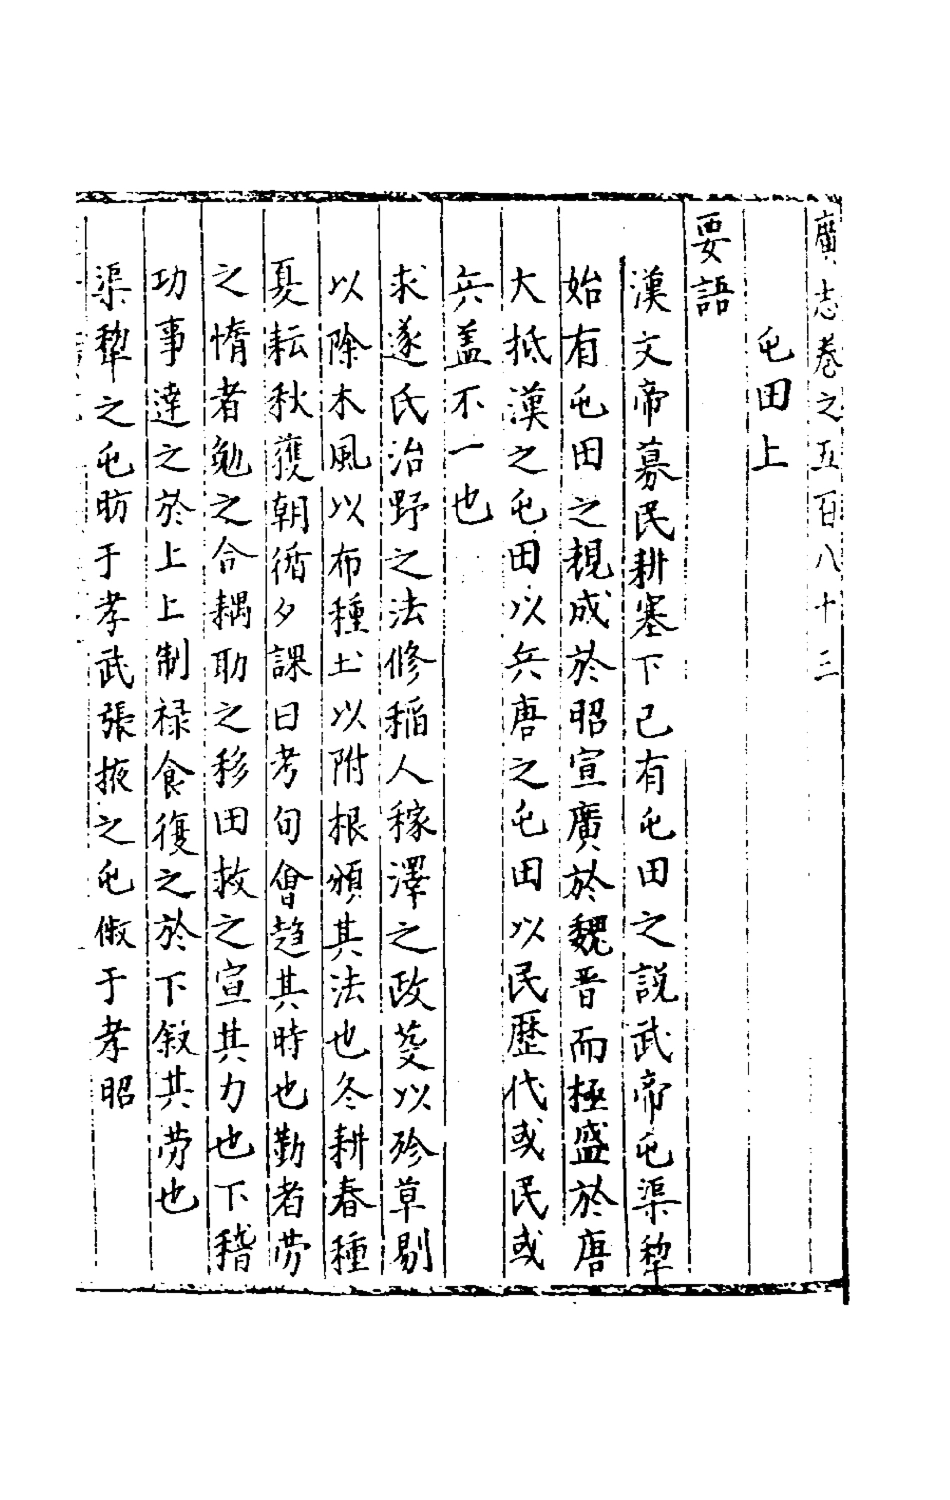 廣志卷之五百八十三
屯田上
要語
漢文帝募民耕塞下已有屯田之說武帝屯渠犂
始有屯田之規成於昭宣廣於魏晉而極盛於唐
大抵漢之屯田以兵唐之屯田以民歷代或民或
兵盖不一也
求遂氏治野之法修稻人稼澤之政芟以殄草剔
以除木風以布種土以附根頒其法也冬耕春種
夏耘秋穫朝循夕課日考旬會趍其時也勤者劳
之惰者勉之合耦助之移田救之宣其力也下稽
功事達之於上上制禄食復之於下叙其劳也
渠犂之屯昉于孝武張掖之屯俶于孝昭